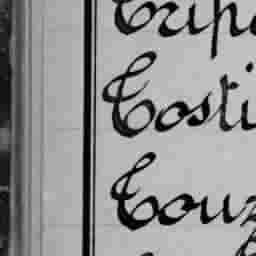 Trip
Costi
Couz